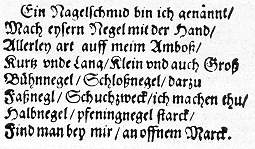 Ein Nagelschmid bin ich genannt/
Mach eysern Negel mit der Hand/
Allerley art auff meim Amboß/
Kurtz vnde Lang/Klein vnd auch Groß
Bühnnegel/Schloßnegel/darzu
Faßnegl/Schuchzweck/ich machen thu/
Halbnegel/pfeningnegel starck/
Find man bey mir/an offnem Marck.